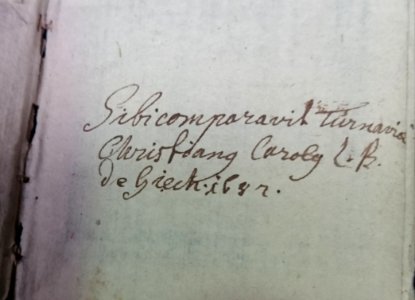 Sibi comparavit Turnaviæ
Christiang Caroly L. B.
de Giech. 1682.